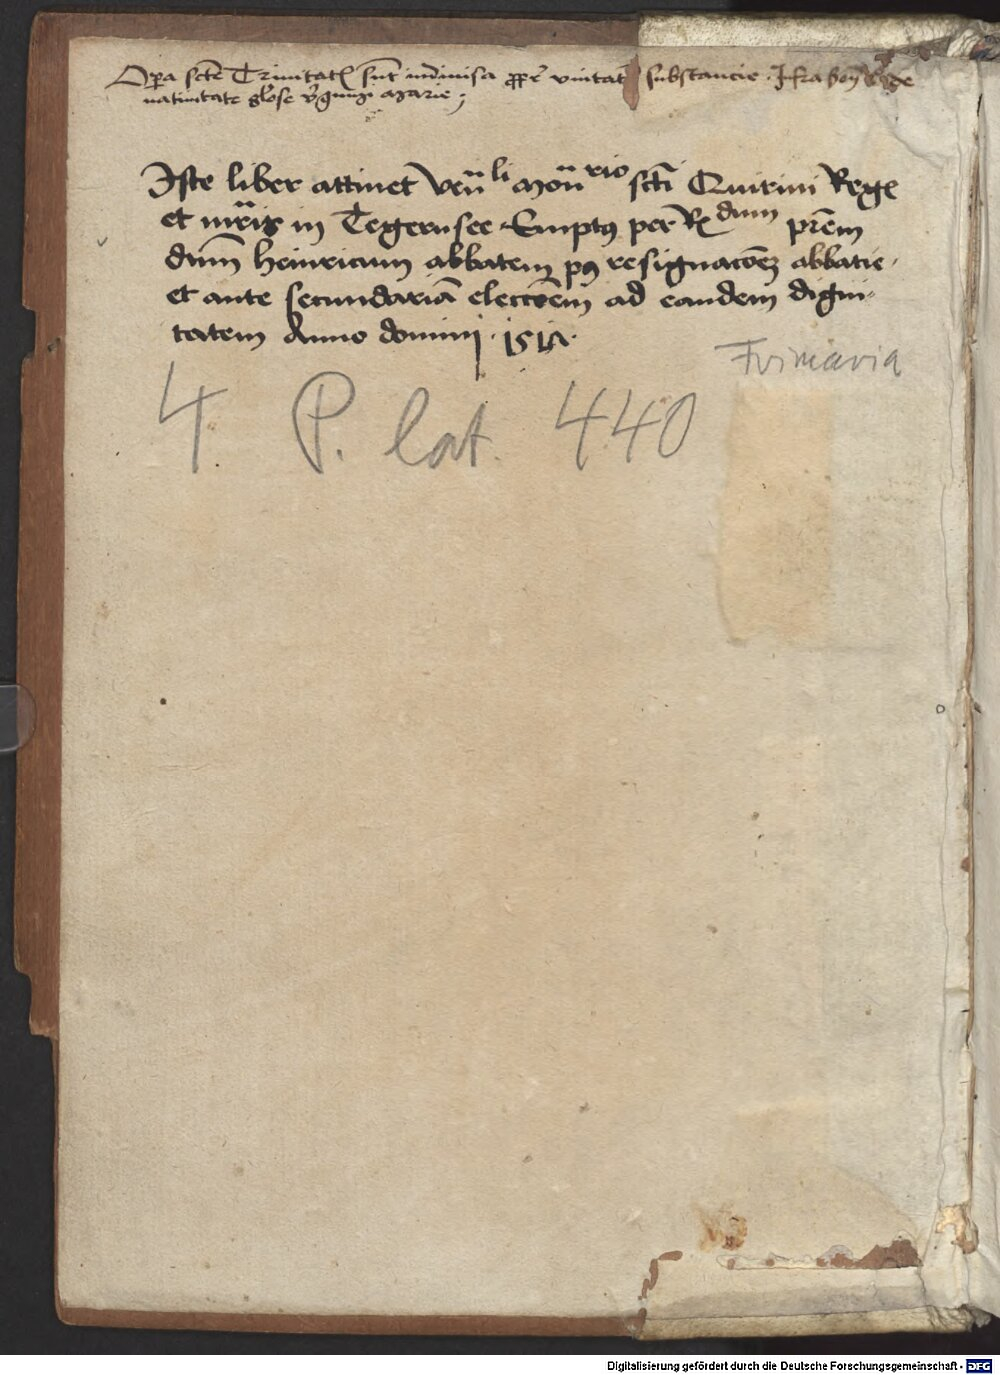 Opa scte Trinitat sunt indiuisa ppr vnitat substancie. Ifra
natiuitate gliose vgnis marie;
Iste liber attinet Ven li Mon rio scti Quirini Regis
et mris in Tegernsee Emptus per R dum prem
dnm Heinricum abbatem post resignacoem abbatie.
et ante secundariā eleccoem ad eandem digni-
tatem Anno domini 1512.
Frimaria
4. P. lat. 440
Digitalisierung gefördert durch die Deutsche Forschungsgemeinschaft - DFG